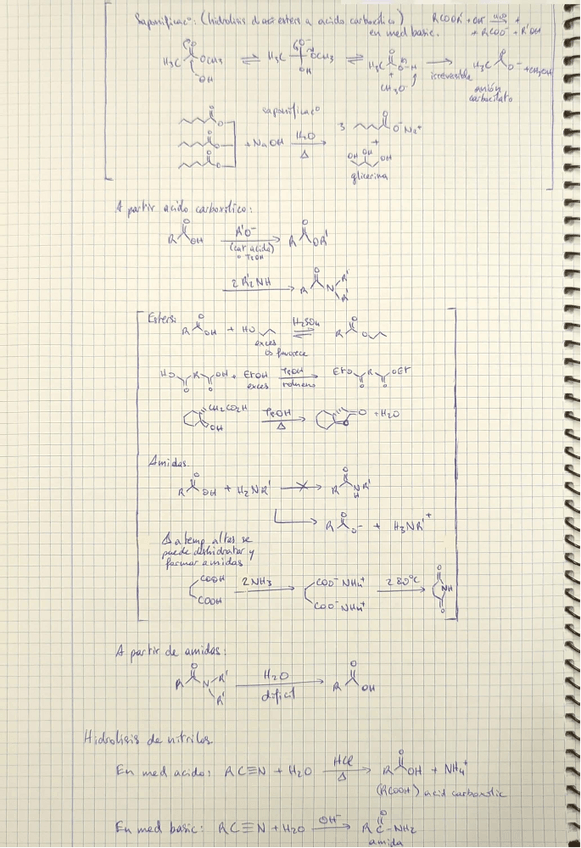 Saponificac°: (hidrolisis d'un ester a acido carboxilico)
en med basic.
RCOOR' + OH⁻ H₂O → RCOO⁻ + R'OH
H₃C O OCH₃ OH ⇌ H₃C O⁻ OCH₃ OH ⇌ H₃C O O-H + CH₃O⁻ → irreversible H₃C O O⁻ + CH₃OH
anión carboxilato
saponificac°
+ NaOH H₂O Δ → 3 O⁻Na⁺
+
OH OH OH
glicerina
A partir acido carboxilico:
R O OH R'O⁻ (cat acida) o TsOH → R O OR'
2 R'₂NH → R O N R' R'
Esters:
R O OH + HO H₂SO₄ ⇌ R O O
exces
os favorece
HO O R O OH + EtOH TsOH → EtO O R O OEt
exces tolueno
CH₂CO₂H OH TsOH Δ → O O + H₂O
Amidas
R O OH + H₂NR' → R O N H R'
→ R O O⁻ + H₃NR'⁺
Δ a temp altas se
puede deshidratar y
formar amidas
COOH COOH 2NH₃ → COO⁻NH₄⁺ COO⁻NH₄⁺ 280°C → O NH O
A partir de amidas:
R O N R' R' H₂O → R O OH
dificil
Hidrolisis de nitrilos
En med acido: RC≡N + H₂O HCl Δ → R O OH + NH₄⁺
(RCOOH) acid carboxilic
En med basic: RC≡N + H₂O OH⁻ → R C O -NH₂
amida